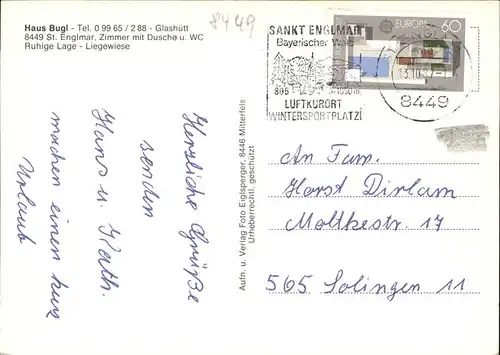 Haus Bugl - Tel. 0 99 65 / 2 88 - Glashütt
8449 St. Englmar, Zimmer mit Dusche u. WC
Ruhige Lage - Liegewiese
8449
SANKT ENGLMAR
Bayerischer Wald
LUFTKURORT
WINTERSPORTPLATZ
EUROPA 60
8449
Herzliche Grüße
senden
Hans u. Kath.
machen einen kurz
Urlaub
Aufn. u. Verlag Foto Eiglsperger, 8446 Mitterfels
Urheberrechtl. geschützt
An Fam.
Horst Dirlam
Moltkestr. 17
565 Solingen 11